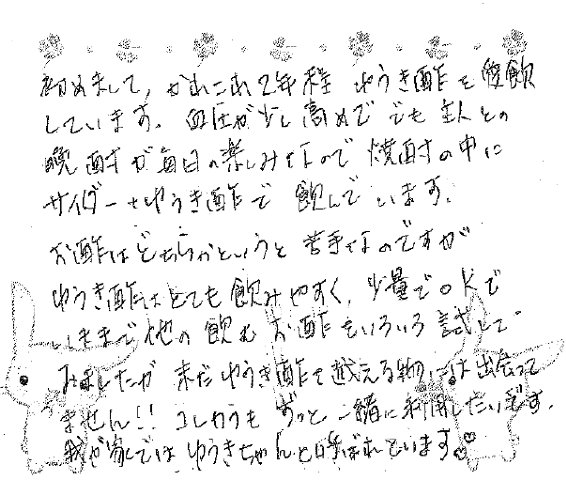 初めまして、かれこれ2年程 ゆうき酢を愛飲
しています。血圧が少し高めで でも主人との
晩酌が毎日の楽しみなので 焼酎の中に
サイダー+ゆうき酢で 飲んでいます。
お酢はどちらかというと 苦手なのですが
ゆうき酢はとても飲みやすく、少量でOKで
いままで他の飲むお酢をいろいろ試して
みましたが 未だゆうき酢を越える物には出会って
ません!! コレからも ずっと ご一緒に利用したいです。
我が家では ゆうきちゃんと呼ばれています♡♡